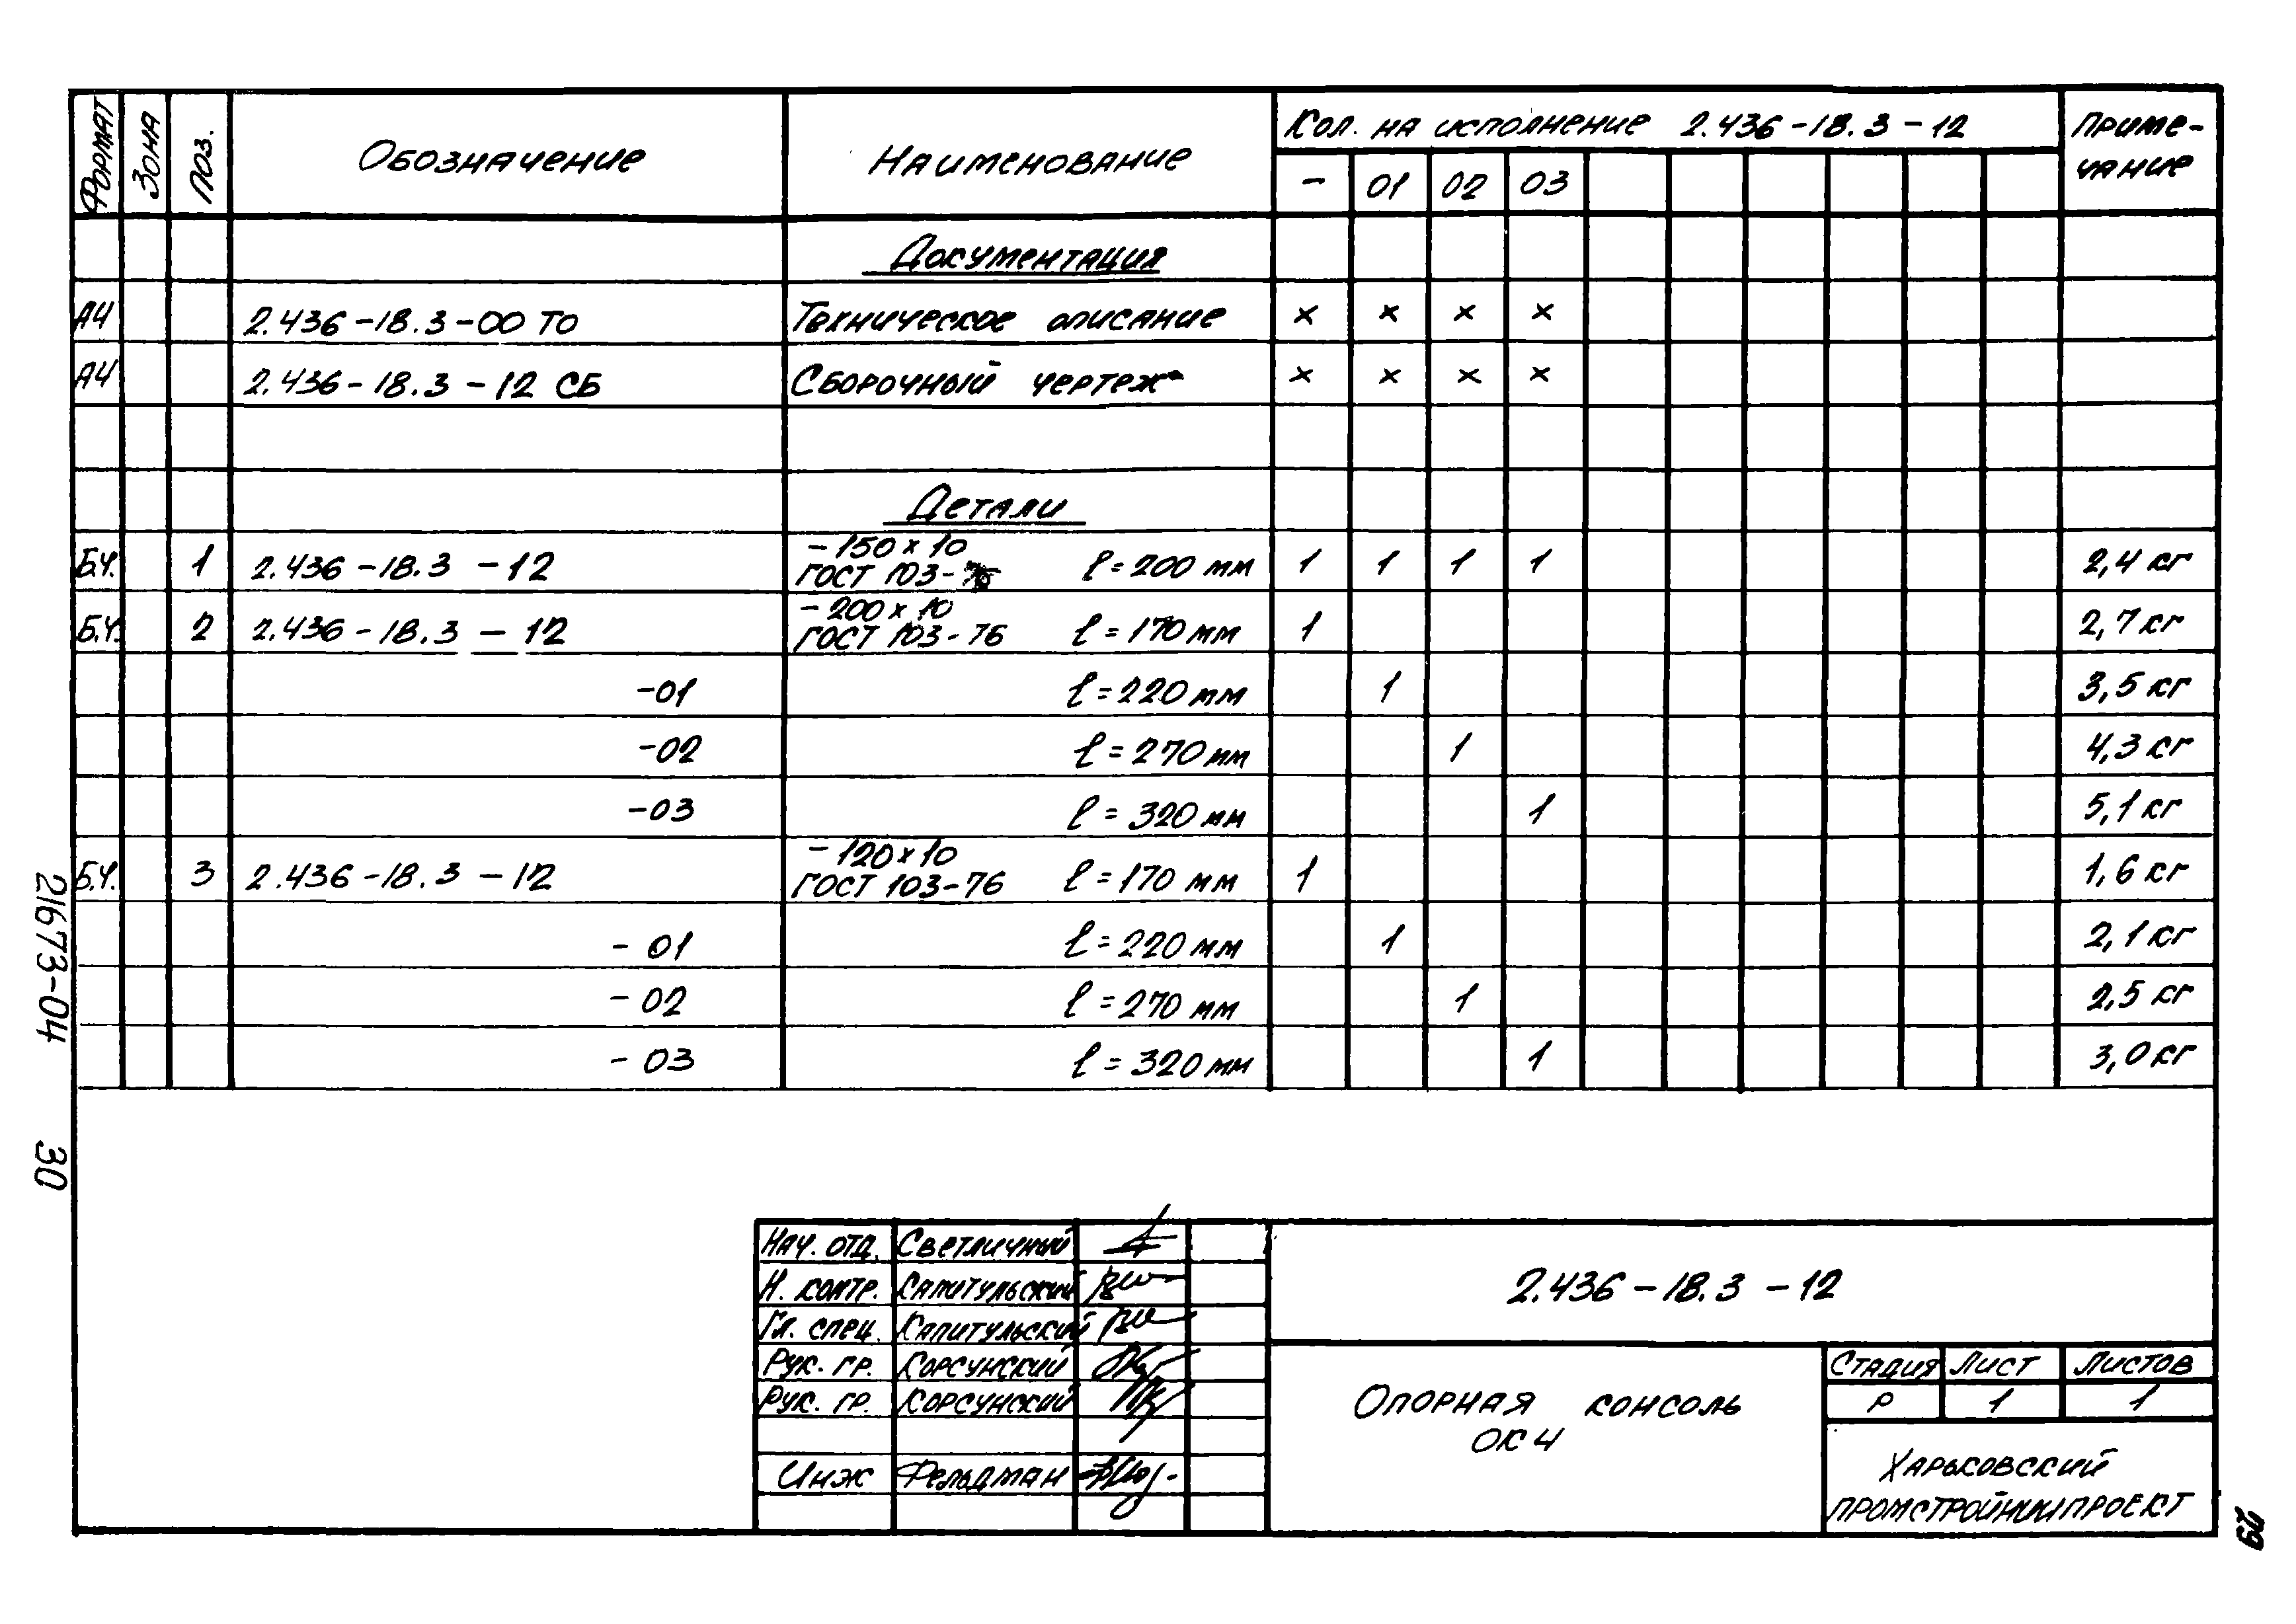 Формат Зона Поз. Обозначение Наименование Кол. на исполнение 2.436-18.3-12 Приме-
чание
- 01 02 03
Документация
А4 2.436-18.3-00 ТО Техническое описание × × × ×
А4 2.436-18.3-12 СБ Сборочный чертеж × × × ×
Детали
Б.Ч. 1 2.436-18.3-12 -150×10 ℓ=200 мм 1 1 1 1 2,4 кг
ГОСТ 103-
Б.Ч. 2 2.436-18.3-12 -200×10 ℓ=170 мм 1 2,7 кг
ГОСТ 103-76
-01 ℓ=220 мм 1 3,5 кг
-02 ℓ=270 мм 1 4,3 кг
-03 ℓ=320 мм 1 5,1 кг
Б.Ч. 3 2.436-18.3-12 -120×10 ℓ=170 мм 1 1,6 кг
ГОСТ 103-76
-01 ℓ=220 мм 1 2,1 кг
-02 ℓ=270 мм 1 2,5 кг
-03 ℓ=320 мм 1 3,0 кг
21673-04 30
Нач. отд. Светличный
Н. контр. Капитульский
Гл. спец. Капитульский
Рук. гр. Корсунский
Рук. гр. Корсунский
Инж Фельдман
2.436-18.3-12
Опорная консоль
ОК 4
Стадия Лист Листов
Р 1 1
Харьковский
ПромстройНИИпроект